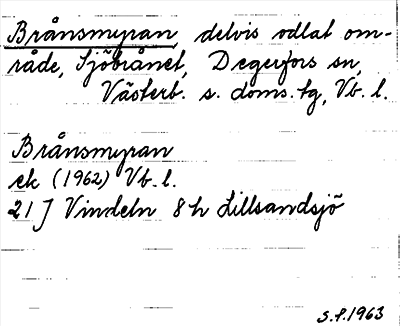 Brånsmyran, delvis odlat om-
råde, Sjöbrånet, Degerfors sn,
Västerb. s. doms. tg, Vb. l.
Brånsmyran
ek (1962) Vb. l.
21 J Vindeln 8 h Lillsandsjö
S.P. 1963